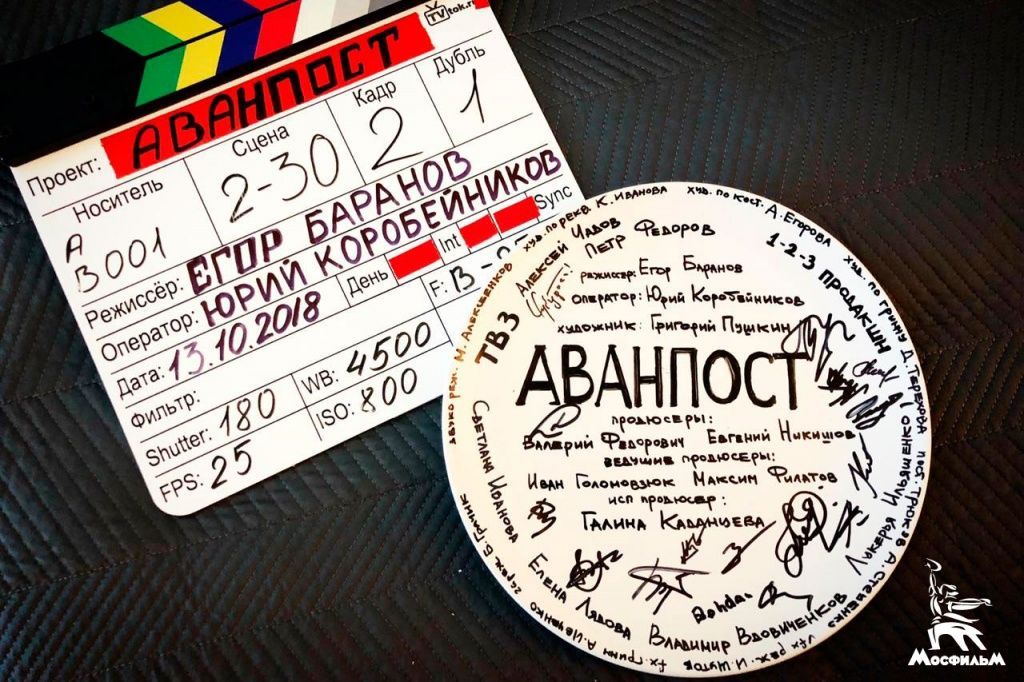 TVtok.r
Проект: АВАНПОСТ
Носитель Сцена Кадр Дубль
A B001 2-30 2 1
Режиссёр: ЕГОР БАРАНОВ
Оператор: ЮРИЙ КОРОБЕЙНИКОВ
Дата: 13.10.2018 День Int Sync
Фильтр: F: B-
Shutter: 180 WB: 4500
FPS: 25 ISO: 800
худ. по рекв К. Иванова
худ. по кост. А. Егорова
худ. по гриму Д. Терехова
пост. трюков А. Стеценко
vfx реж. И. Шутов
fx. грим А. Ивченко
звукореж. М. Алексеенков
1-2-3 продакшн
ТВ3
Алексей Чадов
Петр Федоров
режиссер: Егор Баранов
оператор: Юрий Коробейников
художник: Григорий Пушкин
АВАНПОСТ
продюсеры:
Валерий Федорович Евгений Никишов
ведущие продюсеры:
Иван Голомовзюк Максим Филатов
исп продюсер:
Галина Каданцева
Светлана Иванова
Елена Лядова
Владимир Вдовиченков
Лукерья Ильяшенко
МОСФИЛЬМ